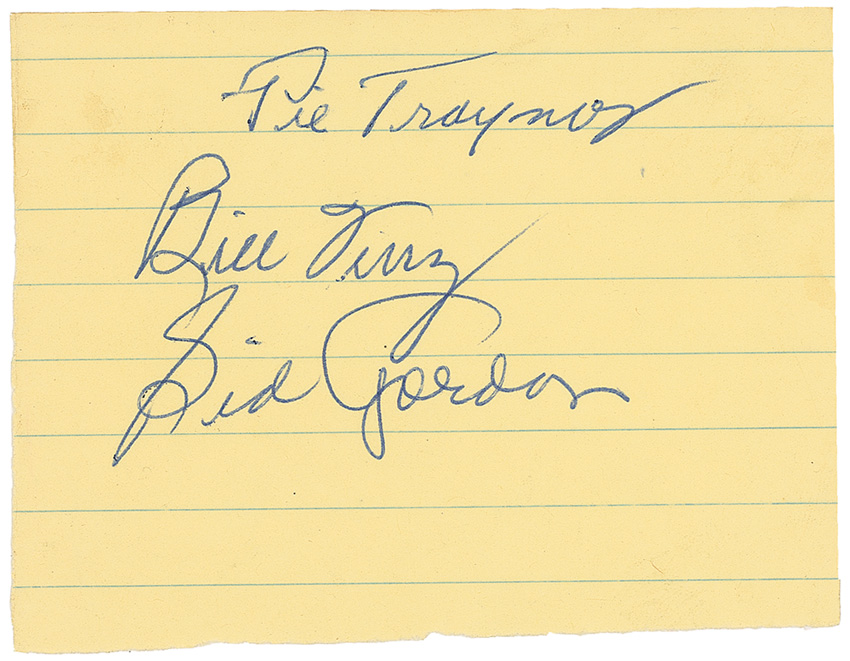 Pie Traynor
Bill Terry
Sid Gordon